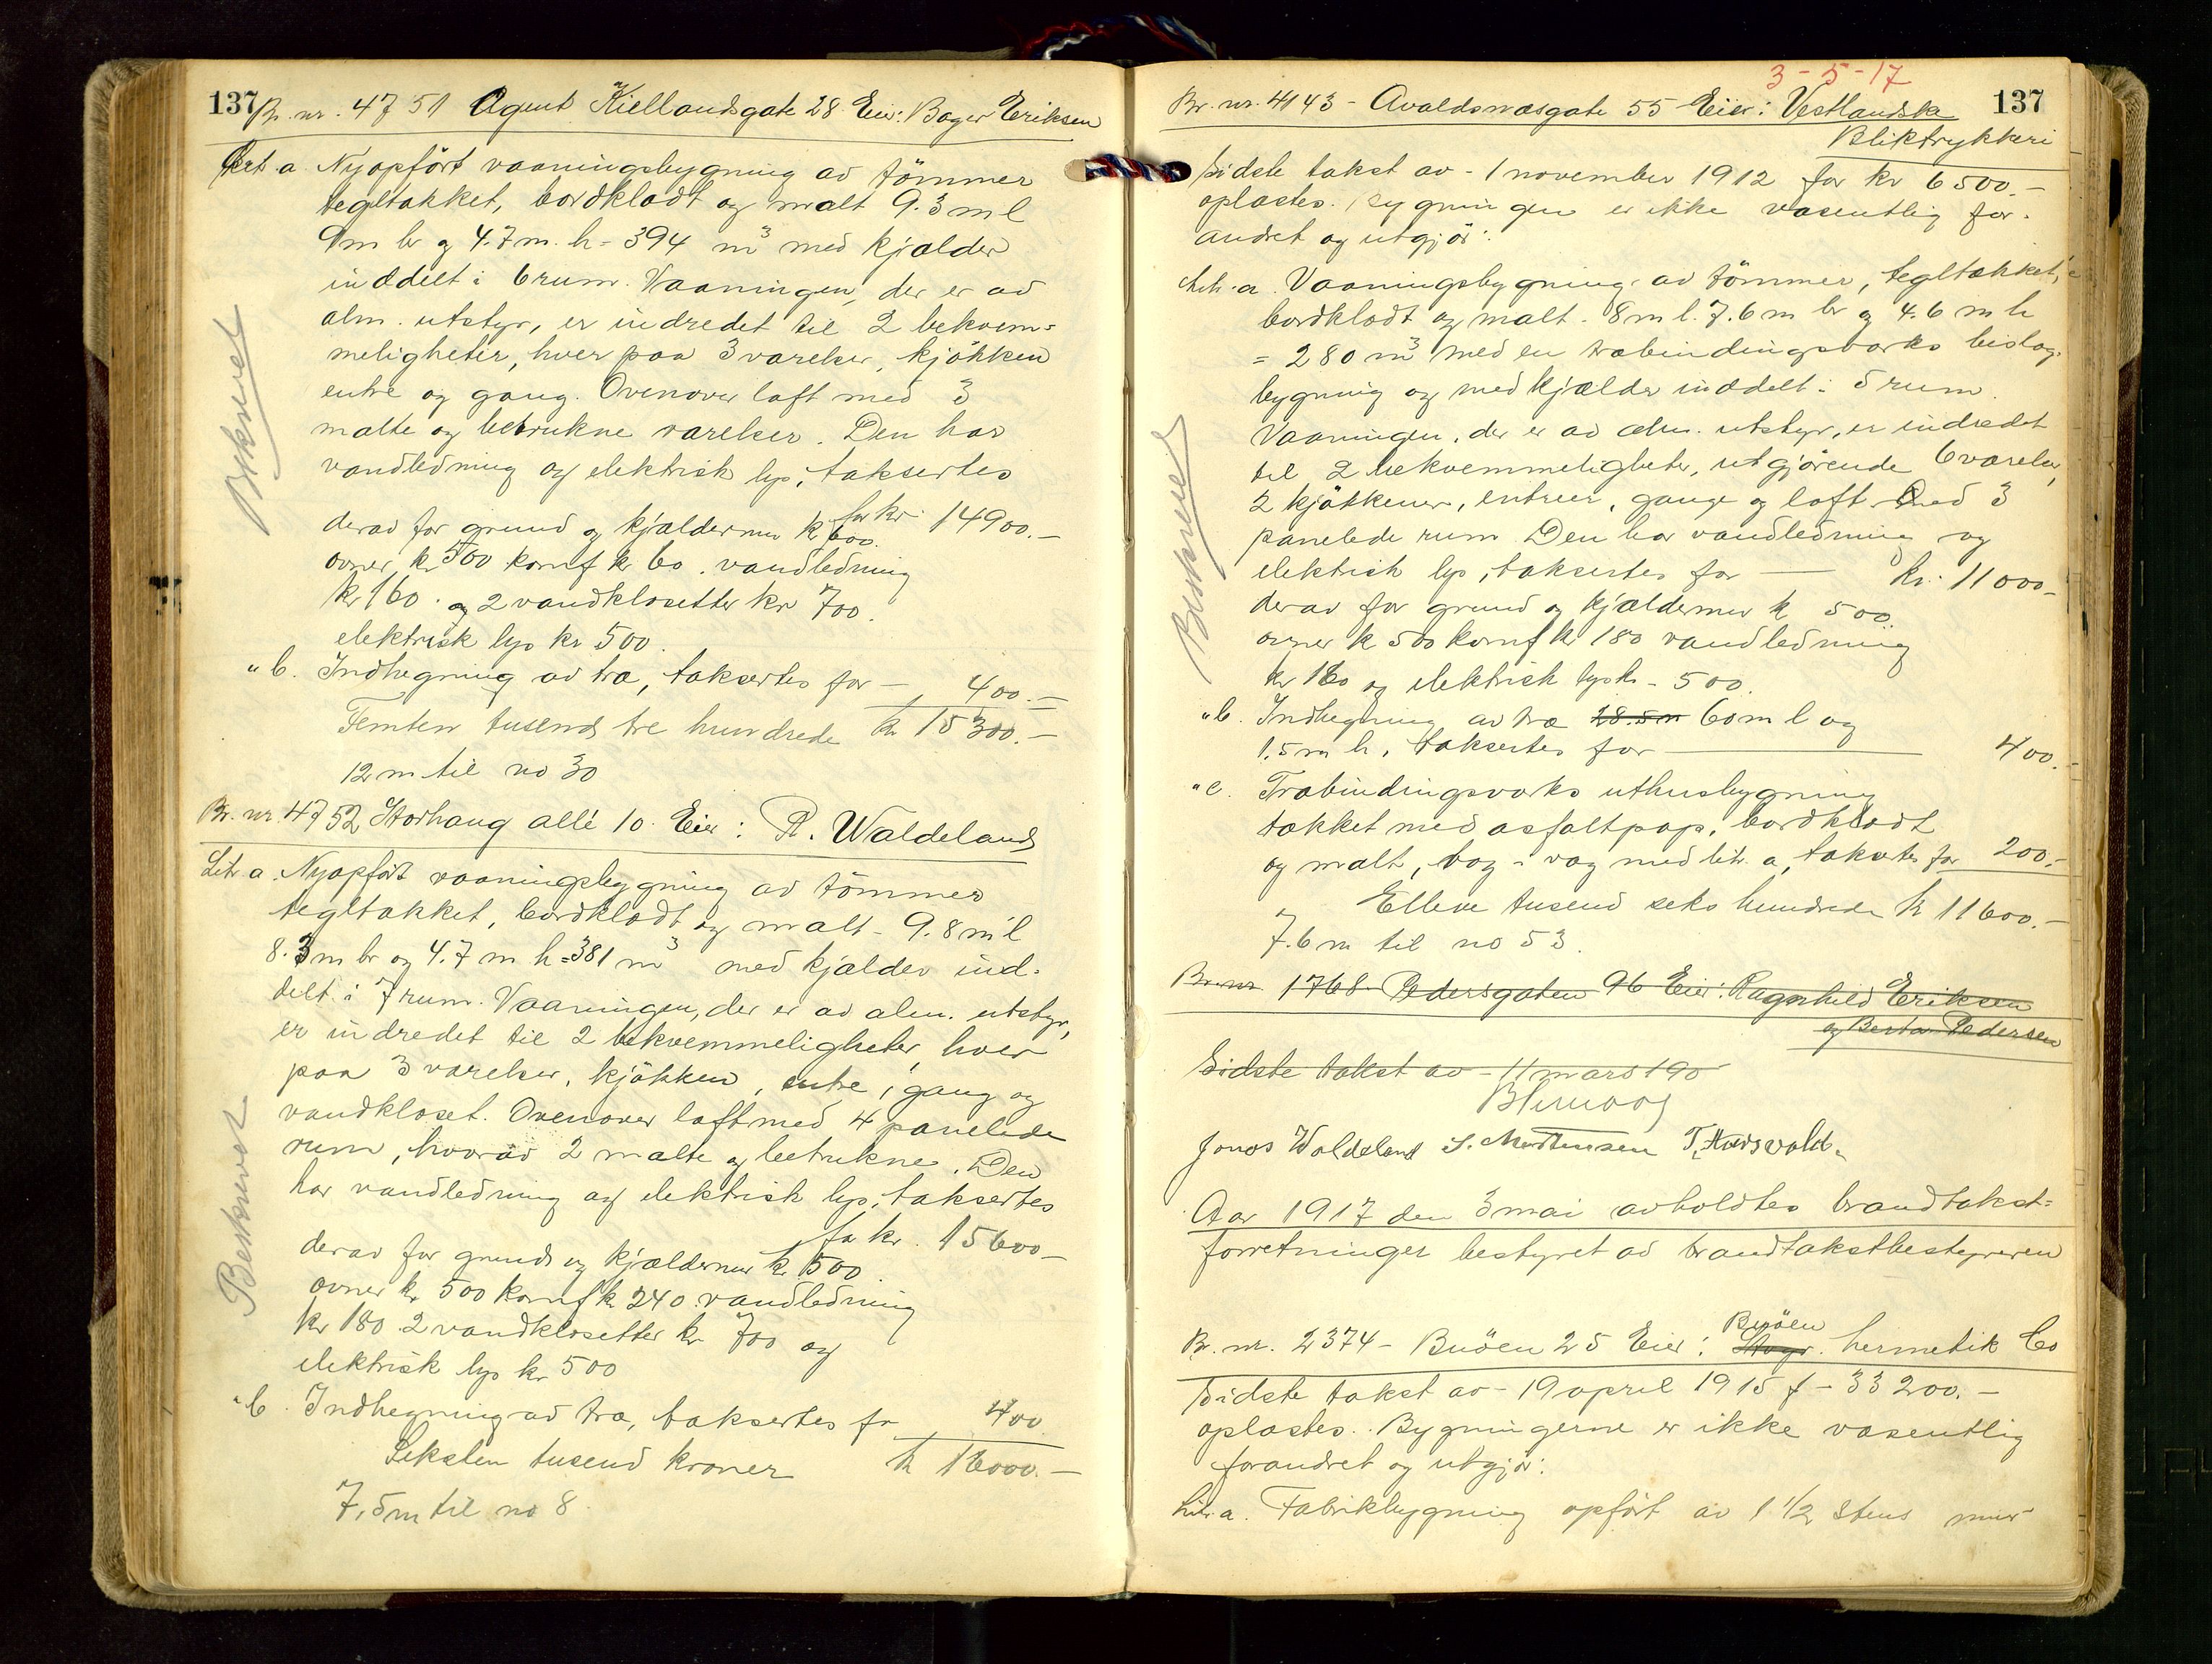 137
Br. nr. 4751 Agent Kiellandsgate 28 Eier: Bager Eriksen
Litr. a. Nyopfört vaaningsbygning av tömmer
tegltækket, bordklædt og malt 9.3 m l
9 m br og 4.7 m. h = 394 m³ med kjælder
inddelt i 6 rum. Vaaningen, der er av
alm. utstyr, er indredet til 2 bekvem=
meligheter, hver paa 3 værelser, kjökken
entre og gang. Ovenover loft med 3
malte og betrukne værelser. Den har
vandledning og elektrisk lys, taksertes
for kr 14900.-
derav for grund og kjældermur kr 600.
ovner kr 500 komf kr 60. vandledning
kr 160. og 2 vandklosetter kr 700.
elektrisk lys kr 500.
" b. Indhegning av træ, taksertes for - 400.-
Femten tusend tre hundrede kr 15300.-
12 m til no 30
Beskrevet
Br. nr. 4752 Storhaug allé 10. Eier: R. Waldeland
Litr. a. Nyopfört vaaningsbygning av tömmer
tegltækket, bordklædt og malt - 9.8 m l
8.3 m br og 4.7 m h = 381 m³ med kjælder ind-
delt i 7 rum. Vaaningen, der er av alm. utstyr,
er indredet til 2 bekvemmeligheter, hver
paa 3 værelser, kjökken, entre, gang og
vandkloset. Ovenover loft med 4 panelede
rum, hvorav 2 malte og betrukne. Den
har vandledning og elektrisk lys, taksertes
for kr. 15600-
derav for grund og kjældermur kr 500.
ovner kr 500 komf kr 240. vandledning
kr 180. 2 vandklosetter kr 700 og
elektrisk lys kr 500
" b. Indhegning av træ, taksertes for 400
Seksten tusend kroner kr 16000.-
7,5 m til no 8.
Beskrevet
3-5-17
137
Br. nr. 4143 - Avaldsnæsgate 55 - Eier: Vestlandske
Bliktrykkeri
Sidste takst av - 1 november 1912 for kr 6500.-
oplæstes. Bygningen er ikke væsentlig for-
andret og utgjör:
Litr. a. Vaaningsbygning av tömmer, tegltækket,
bordklædt og malt. 8 m l. 7.6 m br og 4.6 m h
= 280 m³ med en træbindingsværks bislag-
bygning og med kjælder inddelt i 5 rum.
Vaaningen, der er av alm. utstyr, er indredet
til 2 bekvemmeligheter, utgjörende 6 værelser,
2 kjökkener, entreer, gange og loft med 3
panelede rum. Den har vandledning og
elektrisk lys, taksertes for - kr. 11000-
derav for grund og kjældermur kr 500.
ovner kr 500 komf kr 180 vandledning
kr 160 og elektrisk lys kr - 500.
" b. Indhegning av træ 28.5 m 60 m l og
1.5 m h, taksertes for 400.-
" c. Træbindingsværks uthusbygning
tækket med asfaltpap, bordklædt
og malt, væg i væg med litr. a, taksertes for 200.-
Elleve tusend seks hundrede kr 11600.-
7.6 m til no 53.
Beskrevet
Br. nr 1768 Pedersgaten 96 Eier: Ragnhild Eriksen
og Berta Pedersen
Sidste takst av - 11 mars 190
Jonas Waldeland S. Mortensen
Aar 1917 den 3 mai avholdtes brandtakst=
forretninger bestyret av brandtakstbestyreren
Br. nr. 2374 - Buöen 25 Eier: Buöen hermetik Co
Sidste takst av - 19 april 1915 f - 33200.-
oplæstes. Bygningerne er ikke væsentlig
forandret og utgjör:
Litr. a. Fabrikbygning opfört av 1 1/2 stens mur